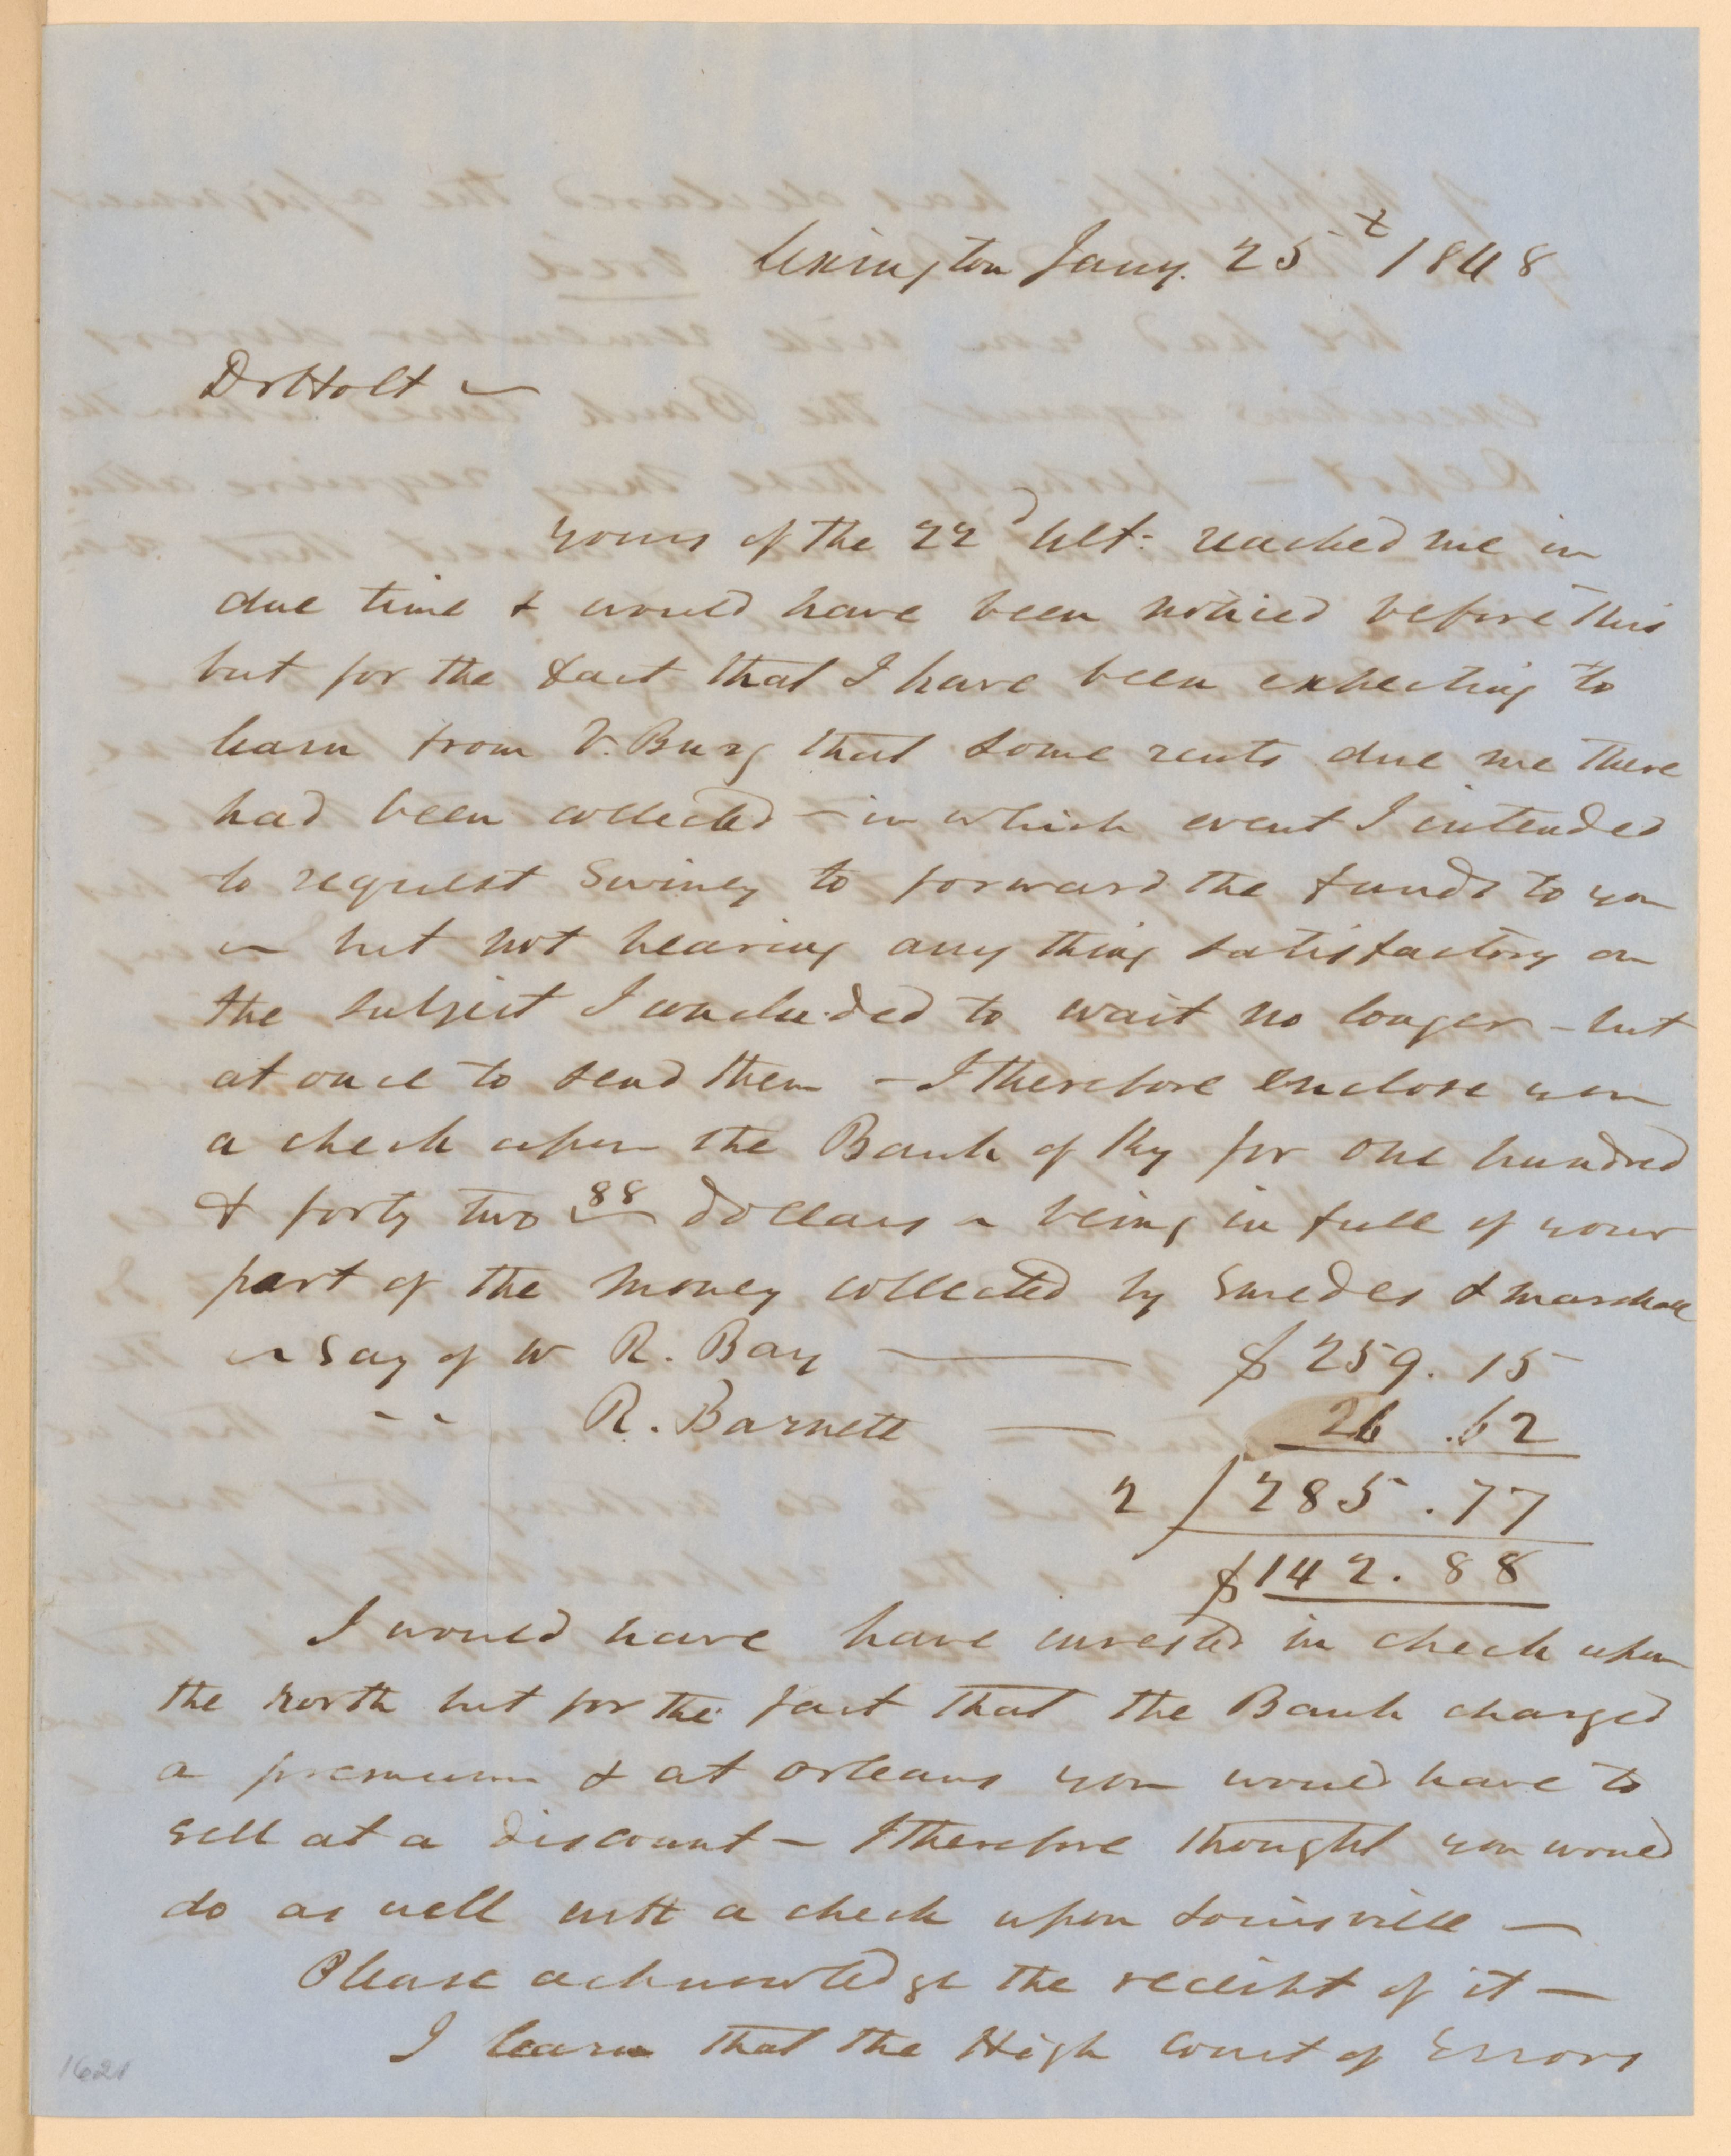 Lexington Jany. 25t 1848
Dr Holt —
Yours of the 22d ult: reached me in
due time & would have been noticed before this
but for the fact that I have been expecting to
learn from V. Burg that some rents due me there
had been collected – in which event I intended
to request Swiney to forward the funds to you
– but not hearing any thing satisfactory on
the subject I concluded to wait no longer – but
at once to send them – I therefore enclose you
a check upon the Bank of Ky for one hundred
& forty two 88 dollars – being in full of your
part of the money collected by Smedes & Marshall
– Say of W R. Bay — $259.15
" " R. Barnett — 26.62
2 / 285.77
$142.88
I would have have invested in check upon
the north but for the fact that the Bank charged
a premium & at Orleans you would have to
sell at a discount – I therefore thought you would
do as well with a check upon Louisville —
Please acknowledge the receipt of it —
I learn that the High Court of Errors
1621